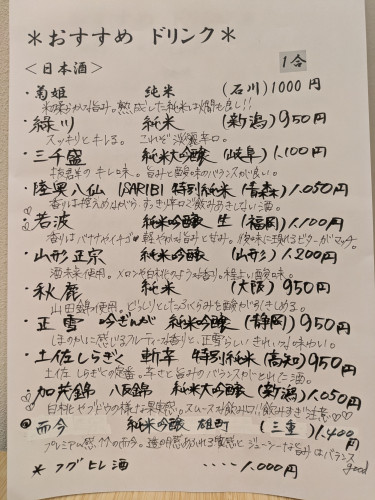 *おすすめ ドリンク*
<日本酒> 1合
・菊姫 純米 (石川) 1000円
・緑川 純米 (新潟) 950円
スッキリとキレる。これぞ淡麗辛口。
・三千盛 純米大吟醸 (岐阜) 1,100円
キレ味。旨みと酸味のバランスが良い。
・陸奥八仙 ISARIBI 特別純米 (青森) 1,050円
香りは控えめながら、すっきり辛口で飲みあきしない酒。
・若波 純米吟醸 生 (福岡) 1,100円
香りはバナナやイチゴ 軽やかな旨みと甘み。後味に現れるビターがマッチ。
・山形正宗 純米吟醸 (山形) 1,200円
使用。メロンや白桃のような香り。程よい酸味。
・秋鹿 純米 (大阪) 950円
山田錦使用。どっしりとしたふくらみを酸が引きしめる。
・正雪 吟ぎんが 純米吟醸 (静岡) 950円
ほのかに感じるフルーティな香りと、正雪らしいきれいな味わい。
・土佐しらぎく 斬辛 特別純米 (高知) 950円
土佐しらぎくの定番。辛さと旨みのバランスがとれた酒。
・加茂錦 純米大吟醸 (新潟) 1,050円
白桃やブドウの様な果実感。スムースな飲み口!!飲みすぎ注意
而今 純米吟醸 雄町 (三重) 1,400円
プレミアム感↑↑の而今。ジューシーな旨みはバランスgood
* フグヒレ酒 ‥‥1,000円